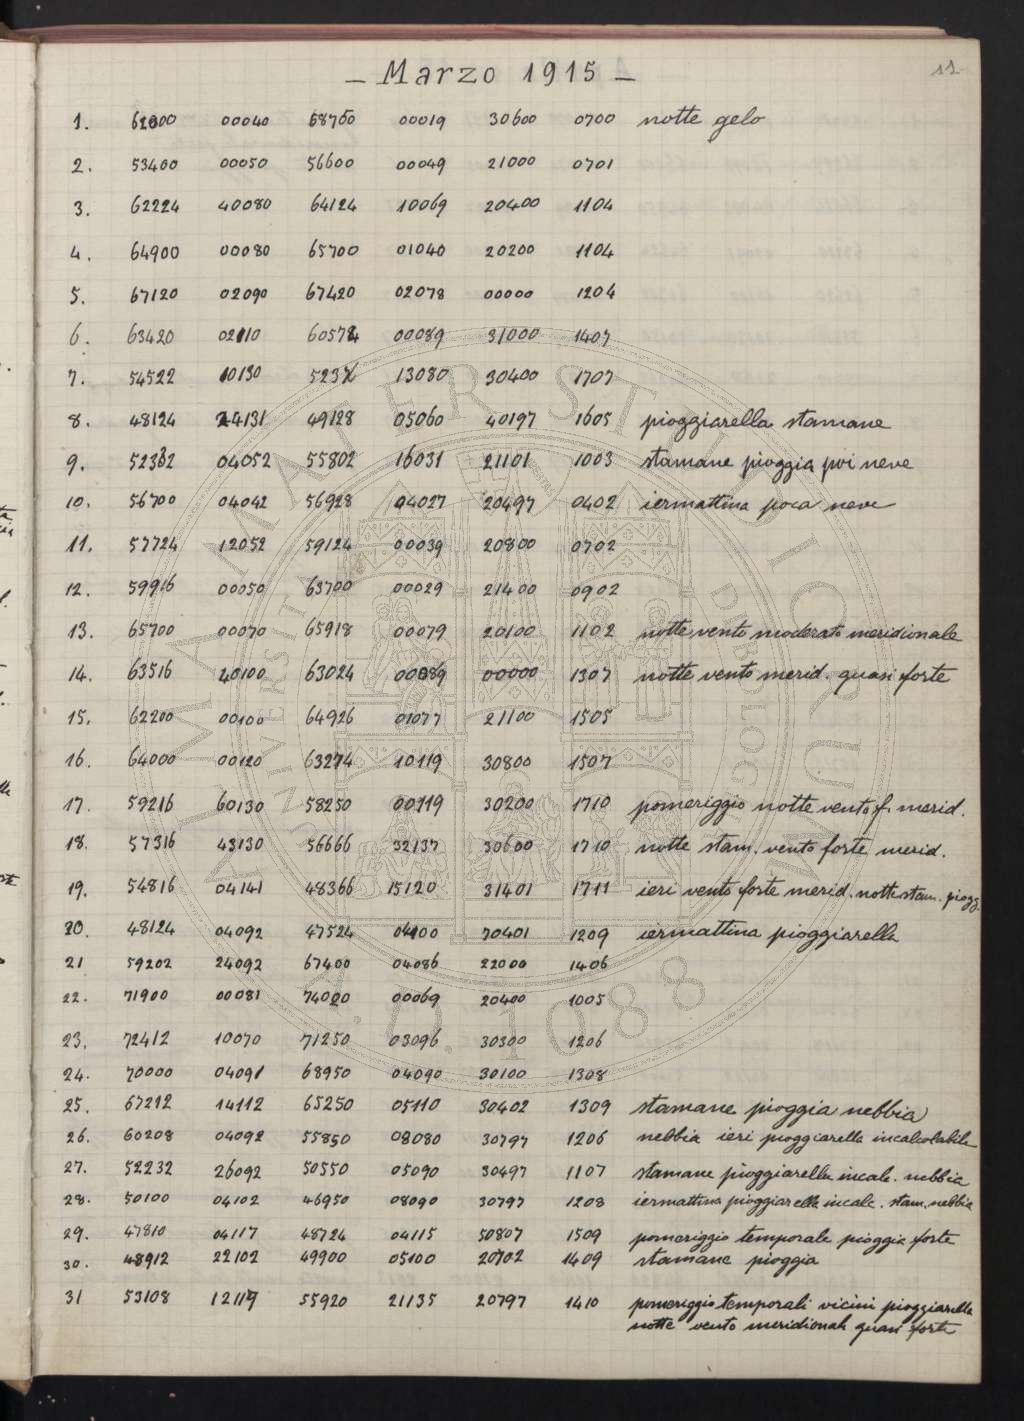 11
— Marzo 1915 —
1. 62000 00040 68760 00019 30600 0700 notte gelo
2. 53400 00050 56600 00049 21000 0701
3. 62224 40080 64124 10069 20400 1104
4. 64900 00080 65700 01040 20200 1104
5. 67120 02090 67420 02078 00000 1204
6. 63420 02110 60574 00089 31000 1407
7. 54522 10130 13080 30400 1707
8. 48124 24131 49128 05060 40197 1605 pioggiarella stamane
9. 52362 04052 55802 16031 21101 1003 stamane pioggia poi neve
10. 56700 04042 56928 04027 20497 0402 iermattina poca neve
11. 57724 12052 59124 00039 20800 0702
12. 59916 00050 63700 00029 21400 0902
13. 65700 00070 65918 00079 20100 1102 notte vento moderato meridionale
14. 63516 40100 63024 00089 00000 1307 notte vento merid. quasi forte
15. 62200 00100 64926 01077 21100 1505
16. 64000 00120 63274 10119 30800 1507
17. 59216 60130 58250 00119 30200 1710 pomeriggio notte vento f. merid.
18. 57316 43130 56666 32137 30600 1710 notte stam. vento forte merid.
19. 54816 04141 48366 15120 31401 1711 ieri vento forte merid. notte stam. piogg
20. 48124 04092 47524 04100 70401 1209 iermattina pioggiarella
21 59202 24092 67400 04086 22000 1406
22. 71900 00081 74020 00069 20400 1005
23. 72412 10070 71250 03096 30300 1206
24. 70000 04091 68950 04090 30100 1308
25. 67212 14112 65250 05110 30402 1309 stamane pioggia nebbia
26. 60208 04092 55850 08080 30797 1206 nebbia ieri pioggiarella incalcolabile
27. 52232 26092 50550 05090 30497 1107 stamane pioggiarella incalc. nebbia
28. 50100 04102 46950 08090 30797 1208 iermattina pioggiarella incalc. stam. nebbia
29. 47810 04117 48724 04115 50807 1509 pomeriggio temporale pioggia forte
30. 48912 22102 49900 05100 20702 1409 stamane pioggia
31 53108 12119 55920 21135 20797 1410 pomeriggio temporali vicini pioggiarella
notte vento meridionale quasi forte
ALMA MATER STUDIORUM
UNIVERSITÀ DI BOLOGNA
A.D. 1088